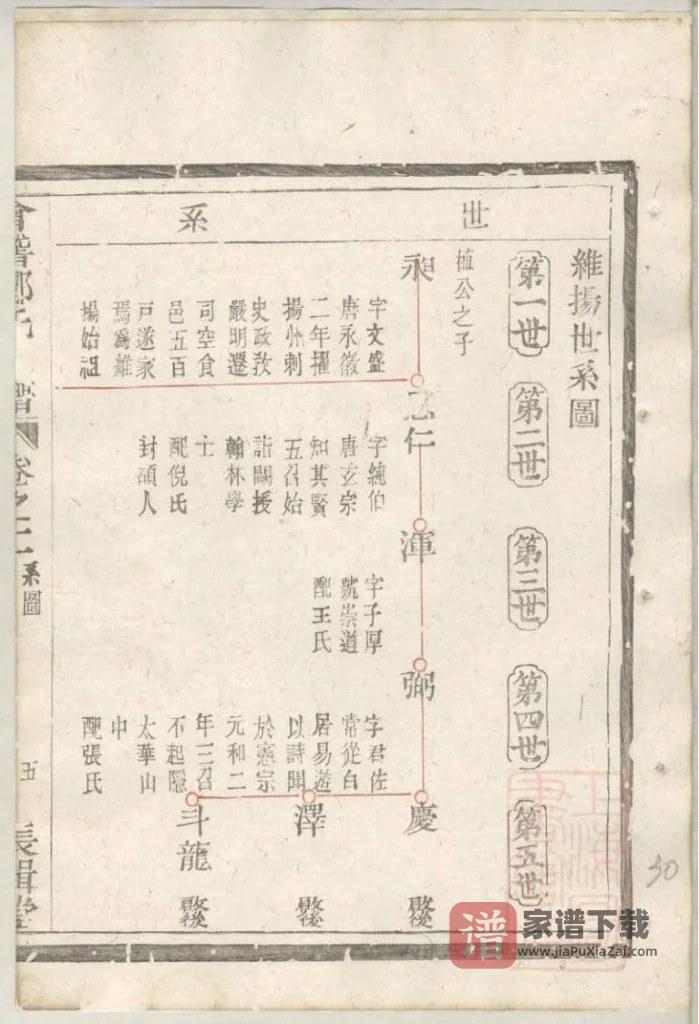 維揚世系圖
第一世
第二世
第三世
第四世
第五世
世系
植公之子
字文盛
唐永徽
二年擢
揚州刺
史政教
嚴明遷
司空食
邑五百
戸遂家
焉爲維
揚始祖
仁
字純伯
唐玄宗
知其賢
五召始
詣闕授
翰林學
士
配倪氏
封碩人
渾
字子厚
號崇道
配王氏
弼
字君佐
常從白
居易遊
以詩聞
於憲宗
元和二
年三召
不起隱
太華山
中
配張氏
慶
澤
斗龍
卷之二
系圖
五
長緝堂
30
谱
家谱下载
www.jiaPuXiaZai.com